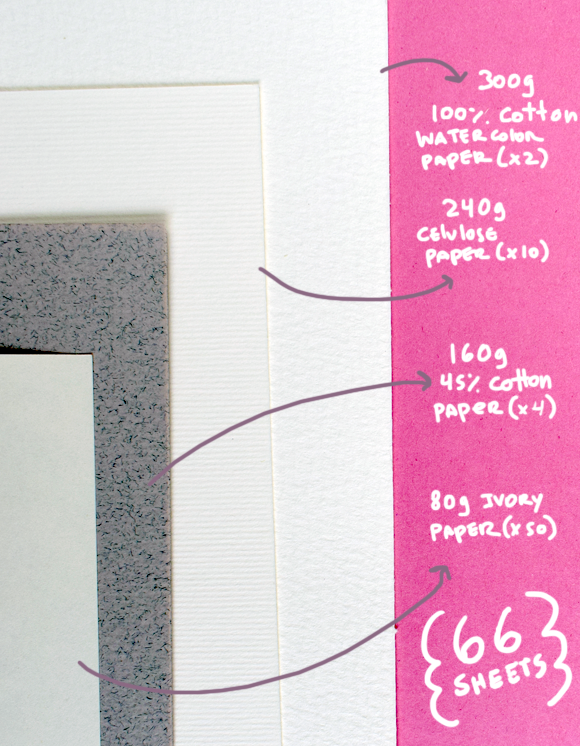 300g
100% cotton
WATERcolor
PAPER (x2)
240g
Celulose
PAPER (x10)
160g
45% cotton
PAPER (x4)
80g IVORY
PAPER (x50)
{66
SHEETS}